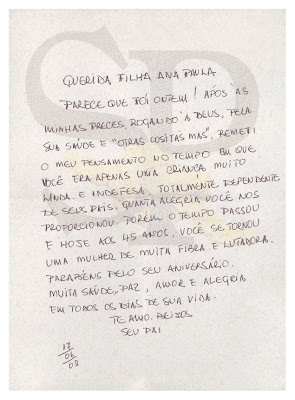 QUERIDA FILHA ANA PAULA
PARECE QUE FOI ONTEM! APÓS ÀS
MINHAS PRECES, ROGANDO A DEUS, PELA
SUA SAÚDE E "OTRAS COSITAS MAS", REMETI
O MEU PENSAMENTO NO TEMPO EM QUE
VOCÊ ERA APENAS UMA CRIANÇA MUITO
LINDA E INDEFESA, TOTALMENTE DEPENDENTE
DE SEUS PAIS. QUANTA ALEGRIA VOCÊ NOS
PROPORCIONOU. PORÉM O TEMPO PASSOU
E HOJE AOS 45 ANOS, VOCÊ SE TORNOU
UMA MULHER DE MUITA FIBRA E LUTADORA.
PARABÉNS PELO SEU ANIVERSÁRIO.
MUITA SAÚDE, PAZ, AMOR E ALEGRIA
EM TODOS OS DIAS DE SUA VIDA.
TE AMO. BEIJOS
SEU PAI
06
08